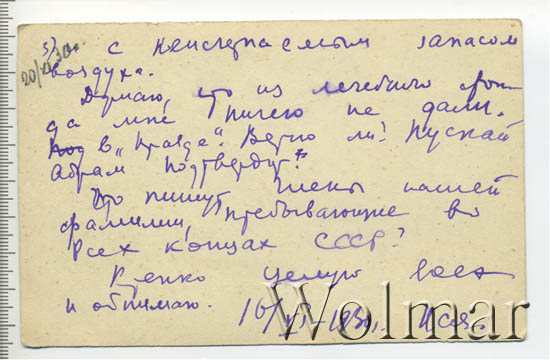 5) с неисчерпаемым запасом
20/XI 30г.
воздуха.
Думаю, что из лечебного фон-
да мне ничего не дали.
в „Правде". Верно ли? Пускай
Абрам подтвердит.
Что пишут члены нашей
фамилии, пребывающие во
всех концах СССР?
Крепко целую всех
и обнимаю. 16/XI-1930г. Ися.
Wolmar